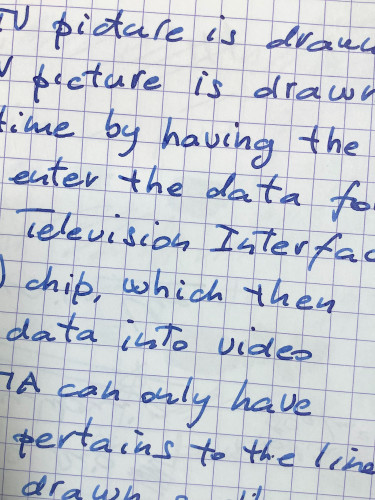 TV picture is drawn
picture is drawn
time by having the
enter the data for
Television Interfac
) chip, which then
data into video
TIA can only have
pertains to the line
drawn